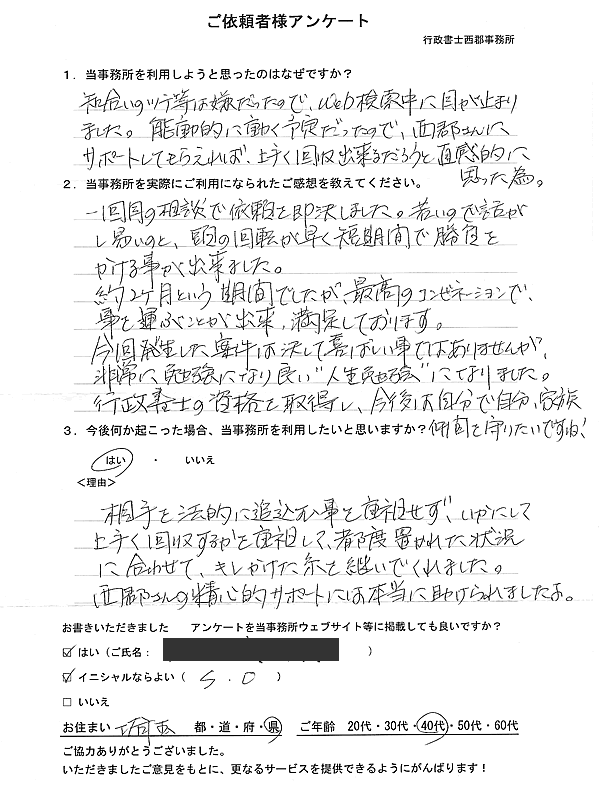 ご依頼者様アンケート
行政書士西郡事務所
1．当事務所を利用しようと思ったのはなぜですか？
知合いのツテ等は嫌だったので、Web検索中に目が止まり
ました。能動的に働く予定だったので、西郡さんに
サポートしてもらえれば、上手く回収出来るだろうと直感的に
思った為。
2．当事務所を実際にご利用になられたご感想を教えてください。
一回目の相談で依頼を即決しました。若いので話が
し易いのと、頭の回転が早く短期間で勝負を
かける事が出来ました。
約2ヶ月という期間でしたが最高のコンビネーションで、
事を運ぶことが出来、満足しております。
今回発生した案件は決して喜ばしい事ではありませんが、
非常に勉強になり良い"人生勉強"になりました。
行政書士の資格を取得し、今後は自分で自分、家族
仲間を守りたいですね！
3．今後何か起こった場合、当事務所を利用したいと思いますか？
はい ・ いいえ
＜理由＞
相手を法的に追込む事を主祖せず、いかにして
上手く回収するかを主祖して、都度置かれた状況
に合わせて、キレかけた糸を継いでくれました。
西郡さんの精心的サポートには本当に助けられましたよ。
お書きいただきました アンケートを当事務所ウェブサイト等に掲載しても良いですか？
☑ はい（ご氏名： ）
☑ イニシャルならよい（ S．O ）
□ いいえ
お住まい 都・道・府・県 ご年齢 20代・30代・40代・50代・60代
ご協力ありがとうございました。
いただきましたご意見をもとに、更なるサービスを提供できるようにがんばります！